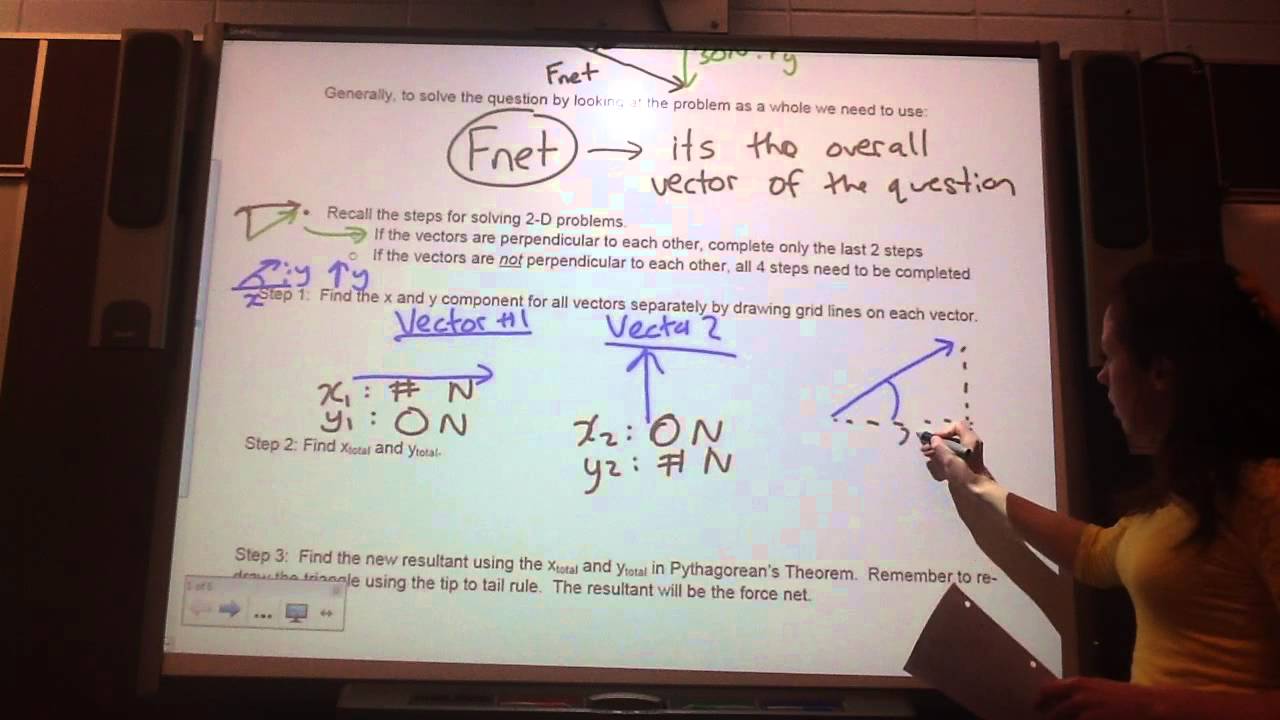 Fnet
Generally, to solve the question by looking at the problem as a whole we need to use:
Fnet → its the overall
vector of the question
Recall the steps for solving 2-D problems.
If the vectors are perpendicular to each other, complete only the last 2 steps
If the vectors are not perpendicular to each other, all 4 steps need to be completed
y ↑y
x
Step 1: Find the x and y component for all vectors separately by drawing grid lines on each vector.
Vector #1 Vector 2
x₁: # N
y₁: 0 N
x2: 0 N
y2: # N
Step 2: Find xtotal and ytotal.
Step 3: Find the new resultant using the xtotal and ytotal in Pythagorean's Theorem. Remember to re-
draw the triangle using the tip to tail rule. The resultant will be the force net.
1 of 6